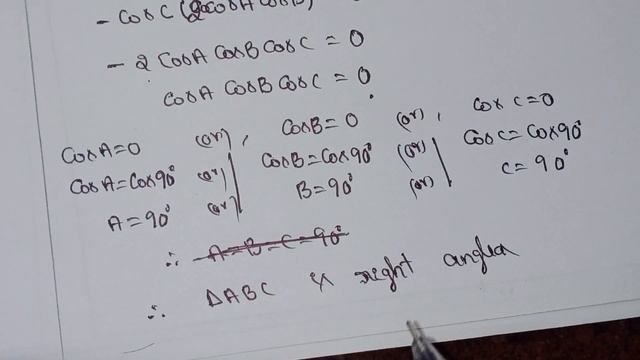 - Cos C (2 Cos A Cos B)
- 2 Cos A Cos B Cos C = 0
Cos A Cos B Cos C = 0.
Cos A = 0 (or), Cos B = 0 (or), Cos C = 0
Cos A = Cos 90° (or) Cos B = Cos 90° (or) Cos C = Cos 90°
A = 90° (or) B = 90° (or) C = 90°
∴ A = B = C = 90°
∴ ΔABC is right angles